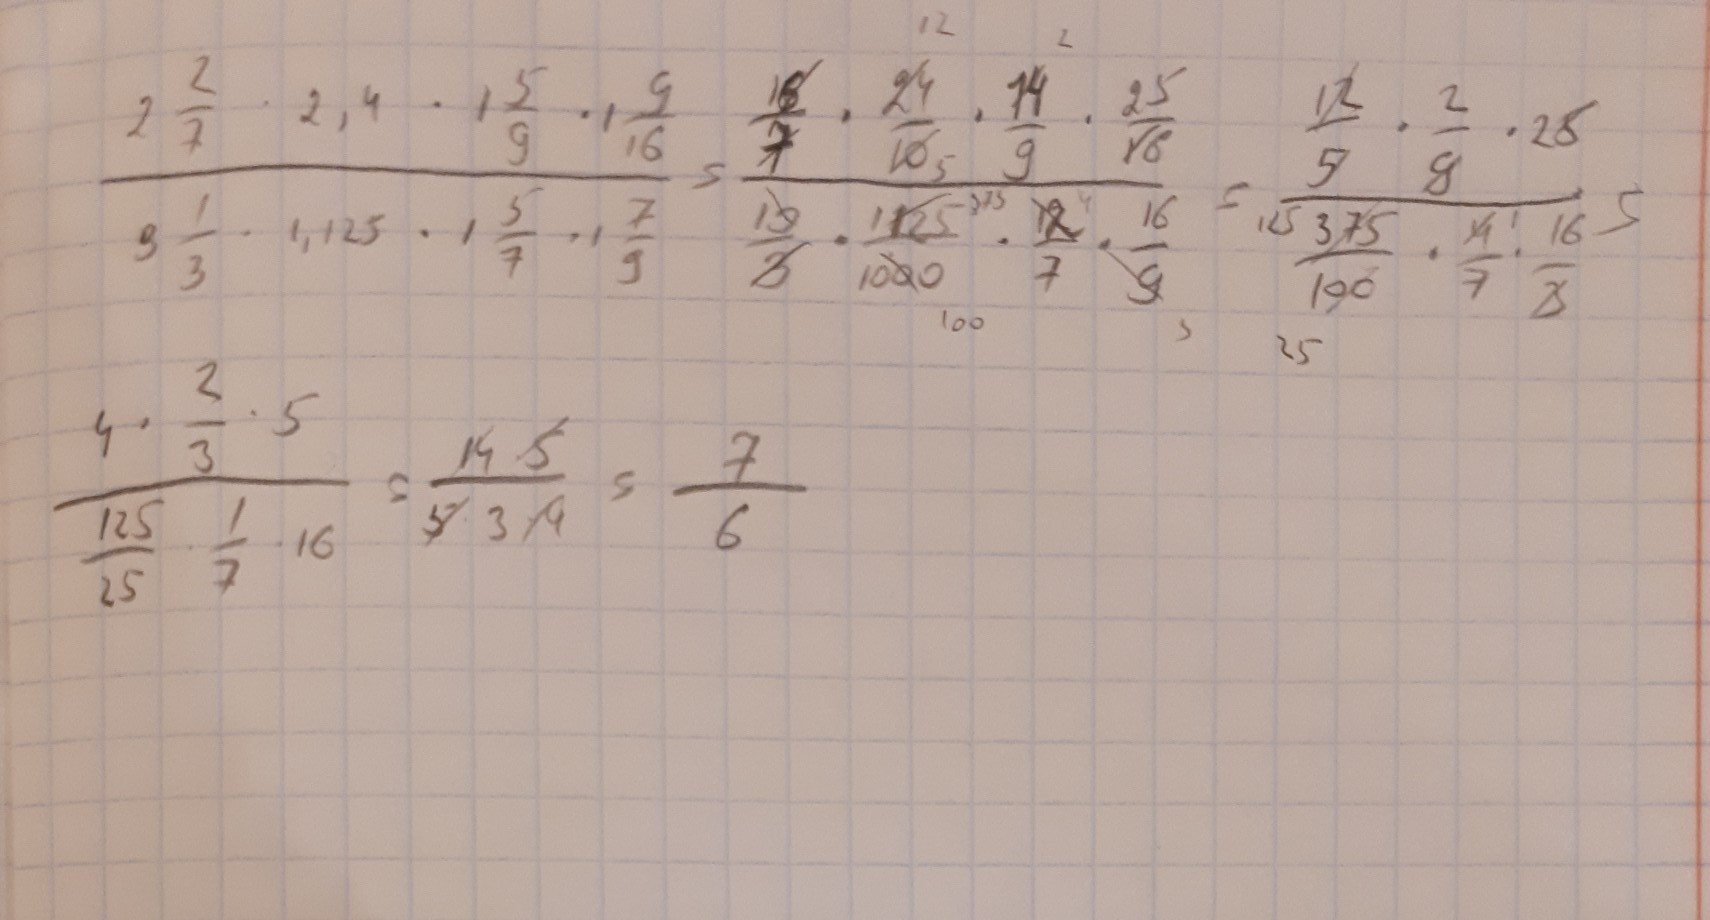 2 2/7 · 2,4 · 1 5/9 · 1 9/16 / 9 1/3 · 1,125 · 1 5/7 · 1 7/9 = 16/7 · 24/10 · 14/9 · 25/16 / 19/3 · 1125/1000 · 12/7 · 16/9 = 12/5 · 2/9 · 25 / 375/100 · 4/7 · 16/3 =
12 2 5 375 4 100 3 125 1 25 5
4 · 2/3 · 5 / 125/25 · 1/7 · 16 = 14 5 / 5 · 3 · 4 = 7/6